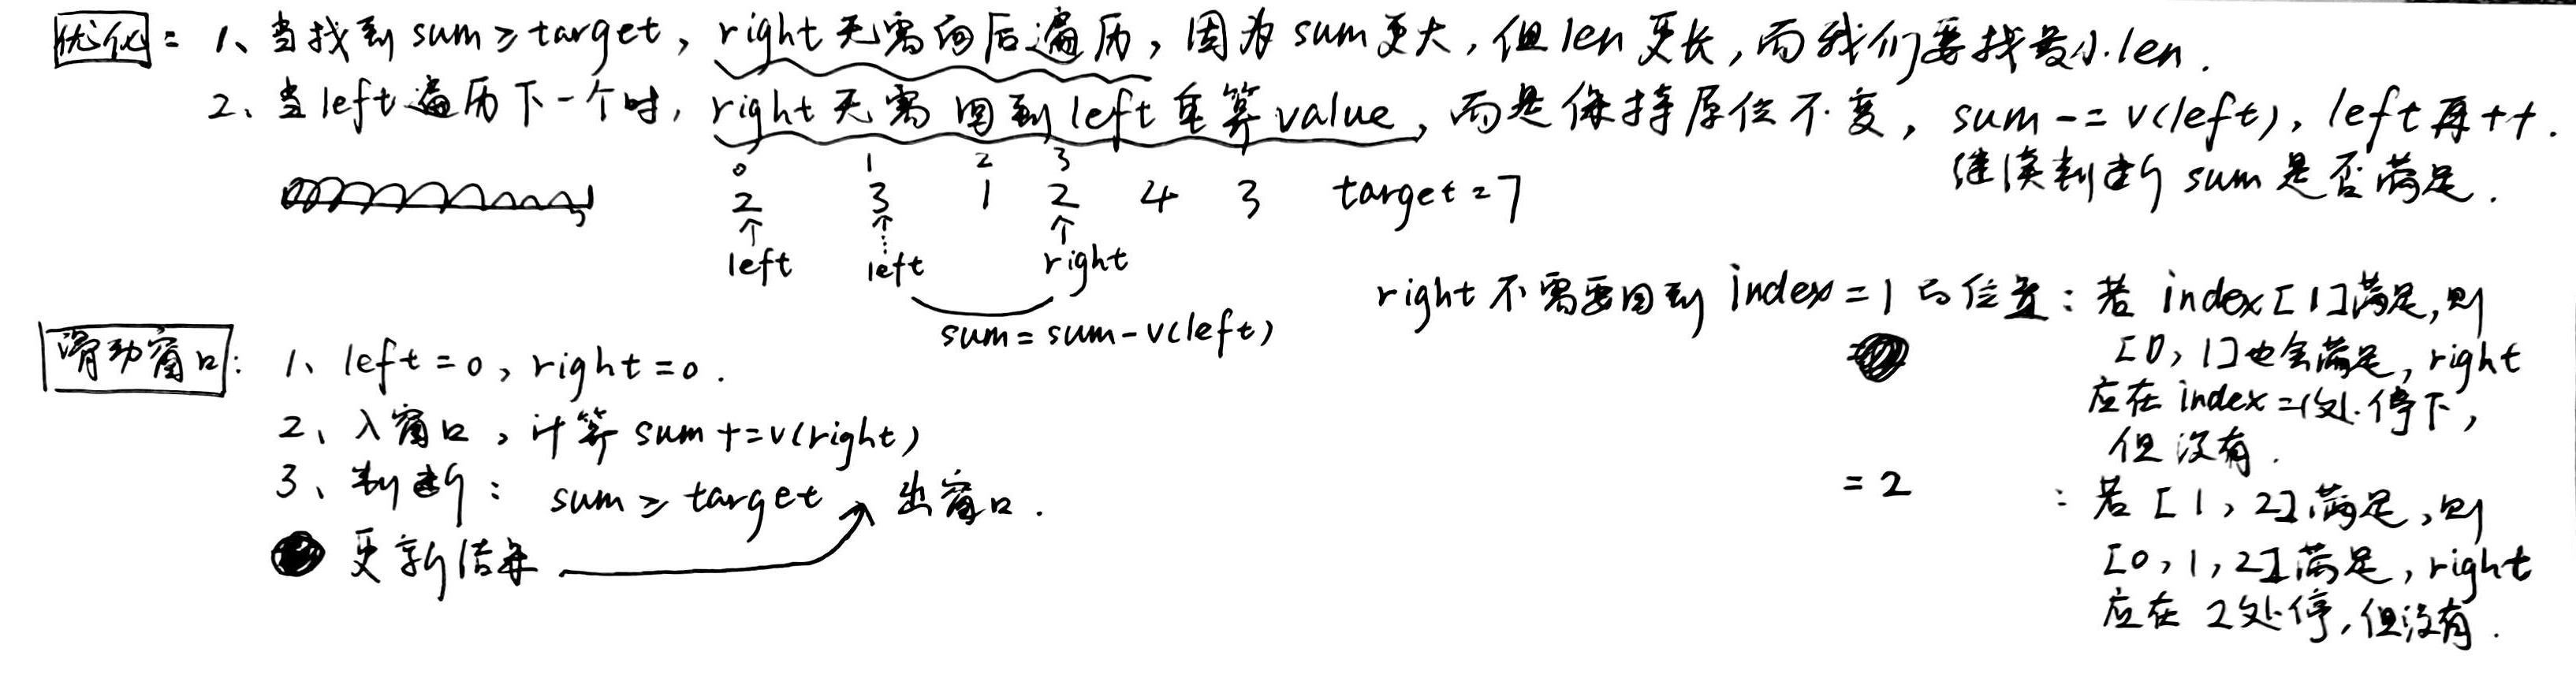 优化: 1、当找到 sum ≥ target, right 无需向后遍历, 因为 sum 更大, 但 len 更长, 而我们要找最小 len.
2、当 left 遍历下一个时, right 无需回到 left 重算 value, 而是保持原位不变, sum -= v(left), left 再++.
继续判断 sum 是否满足.
0 1 2 3
2 3 1 2 4 3 target = 7
left left right
sum = sum - v(left)
right 不需要回到 index = 1 的位置: 若 index[1]满足, 则
[0, 1]也会满足, right
应在 index=1处停下,
但没有.
= 2 : 若 [1, 2]满足, 则
[0, 1, 2]满足, right
应在 2处停, 但没有.
滑动窗口: 1、left = 0, right = 0.
2、入窗口, 计算 sum += v(right)
3、判断: sum ≥ target 出窗口.
更新结果